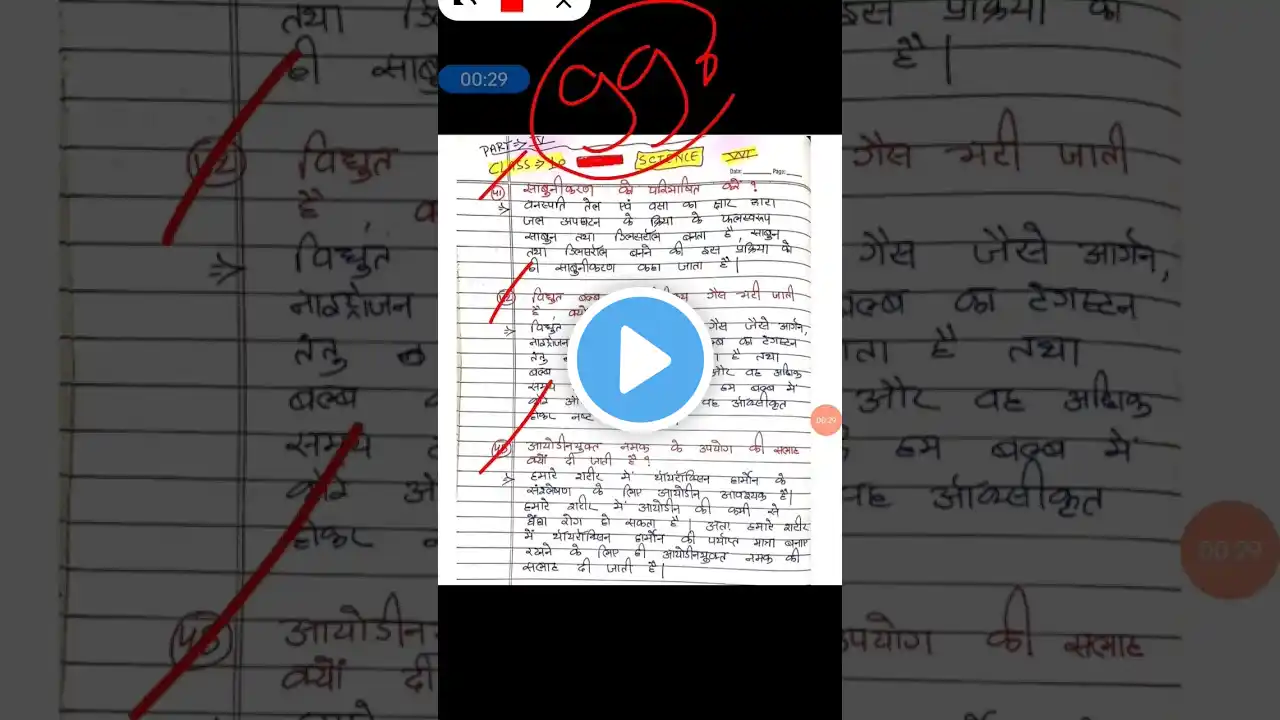 00:29
99%
PART ⇒ V
CLASS ⇒ 10 SCIENCE VVI
Date: Page:
41 साबुनीकरण को परिभाषित करें ?
⇒ वनस्पति तेल एवं वसा का क्षार द्वारा
जल अपघटन के क्रिया के फलस्वरूप
साबुन तथा ग्लिसरॉल बनता है, साबुन
तथा ग्लिसरॉल बनने की इस प्रक्रिया को
ही साबुनीकरण कहा जाता है |
42 विद्युत बल्ब गैस भरी जाती
है, क्यों
⇒ विद्युत गैस जैसे आर्गन,
नाइट्रोजन बल्ब का टंगस्टन
तंतु न है तथा
बल्ब और वह अधिक
समय हम बल्ब में
कोई वह ऑक्सीकृत
होकर नष्ट
43 आयोडीनयुक्त नमक के उपयोग की सलाह
क्यों दी जाती है ?
⇒ हमारे शरीर में थॉयरॉक्सिन हार्मोन के
संश्लेषण के लिए आयोडीन आवश्यक है|
हमारे शरीर में आयोडीन की कमी से
घेंघा रोग हो सकता है | अतः हमारे शरीर
में थॉयरॉक्सिन हार्मोन की पर्याप्त मात्रा बनाए
रखने के लिए ही आयोडीनयुक्त नमक की
सलाह दी जाती है |
00:29